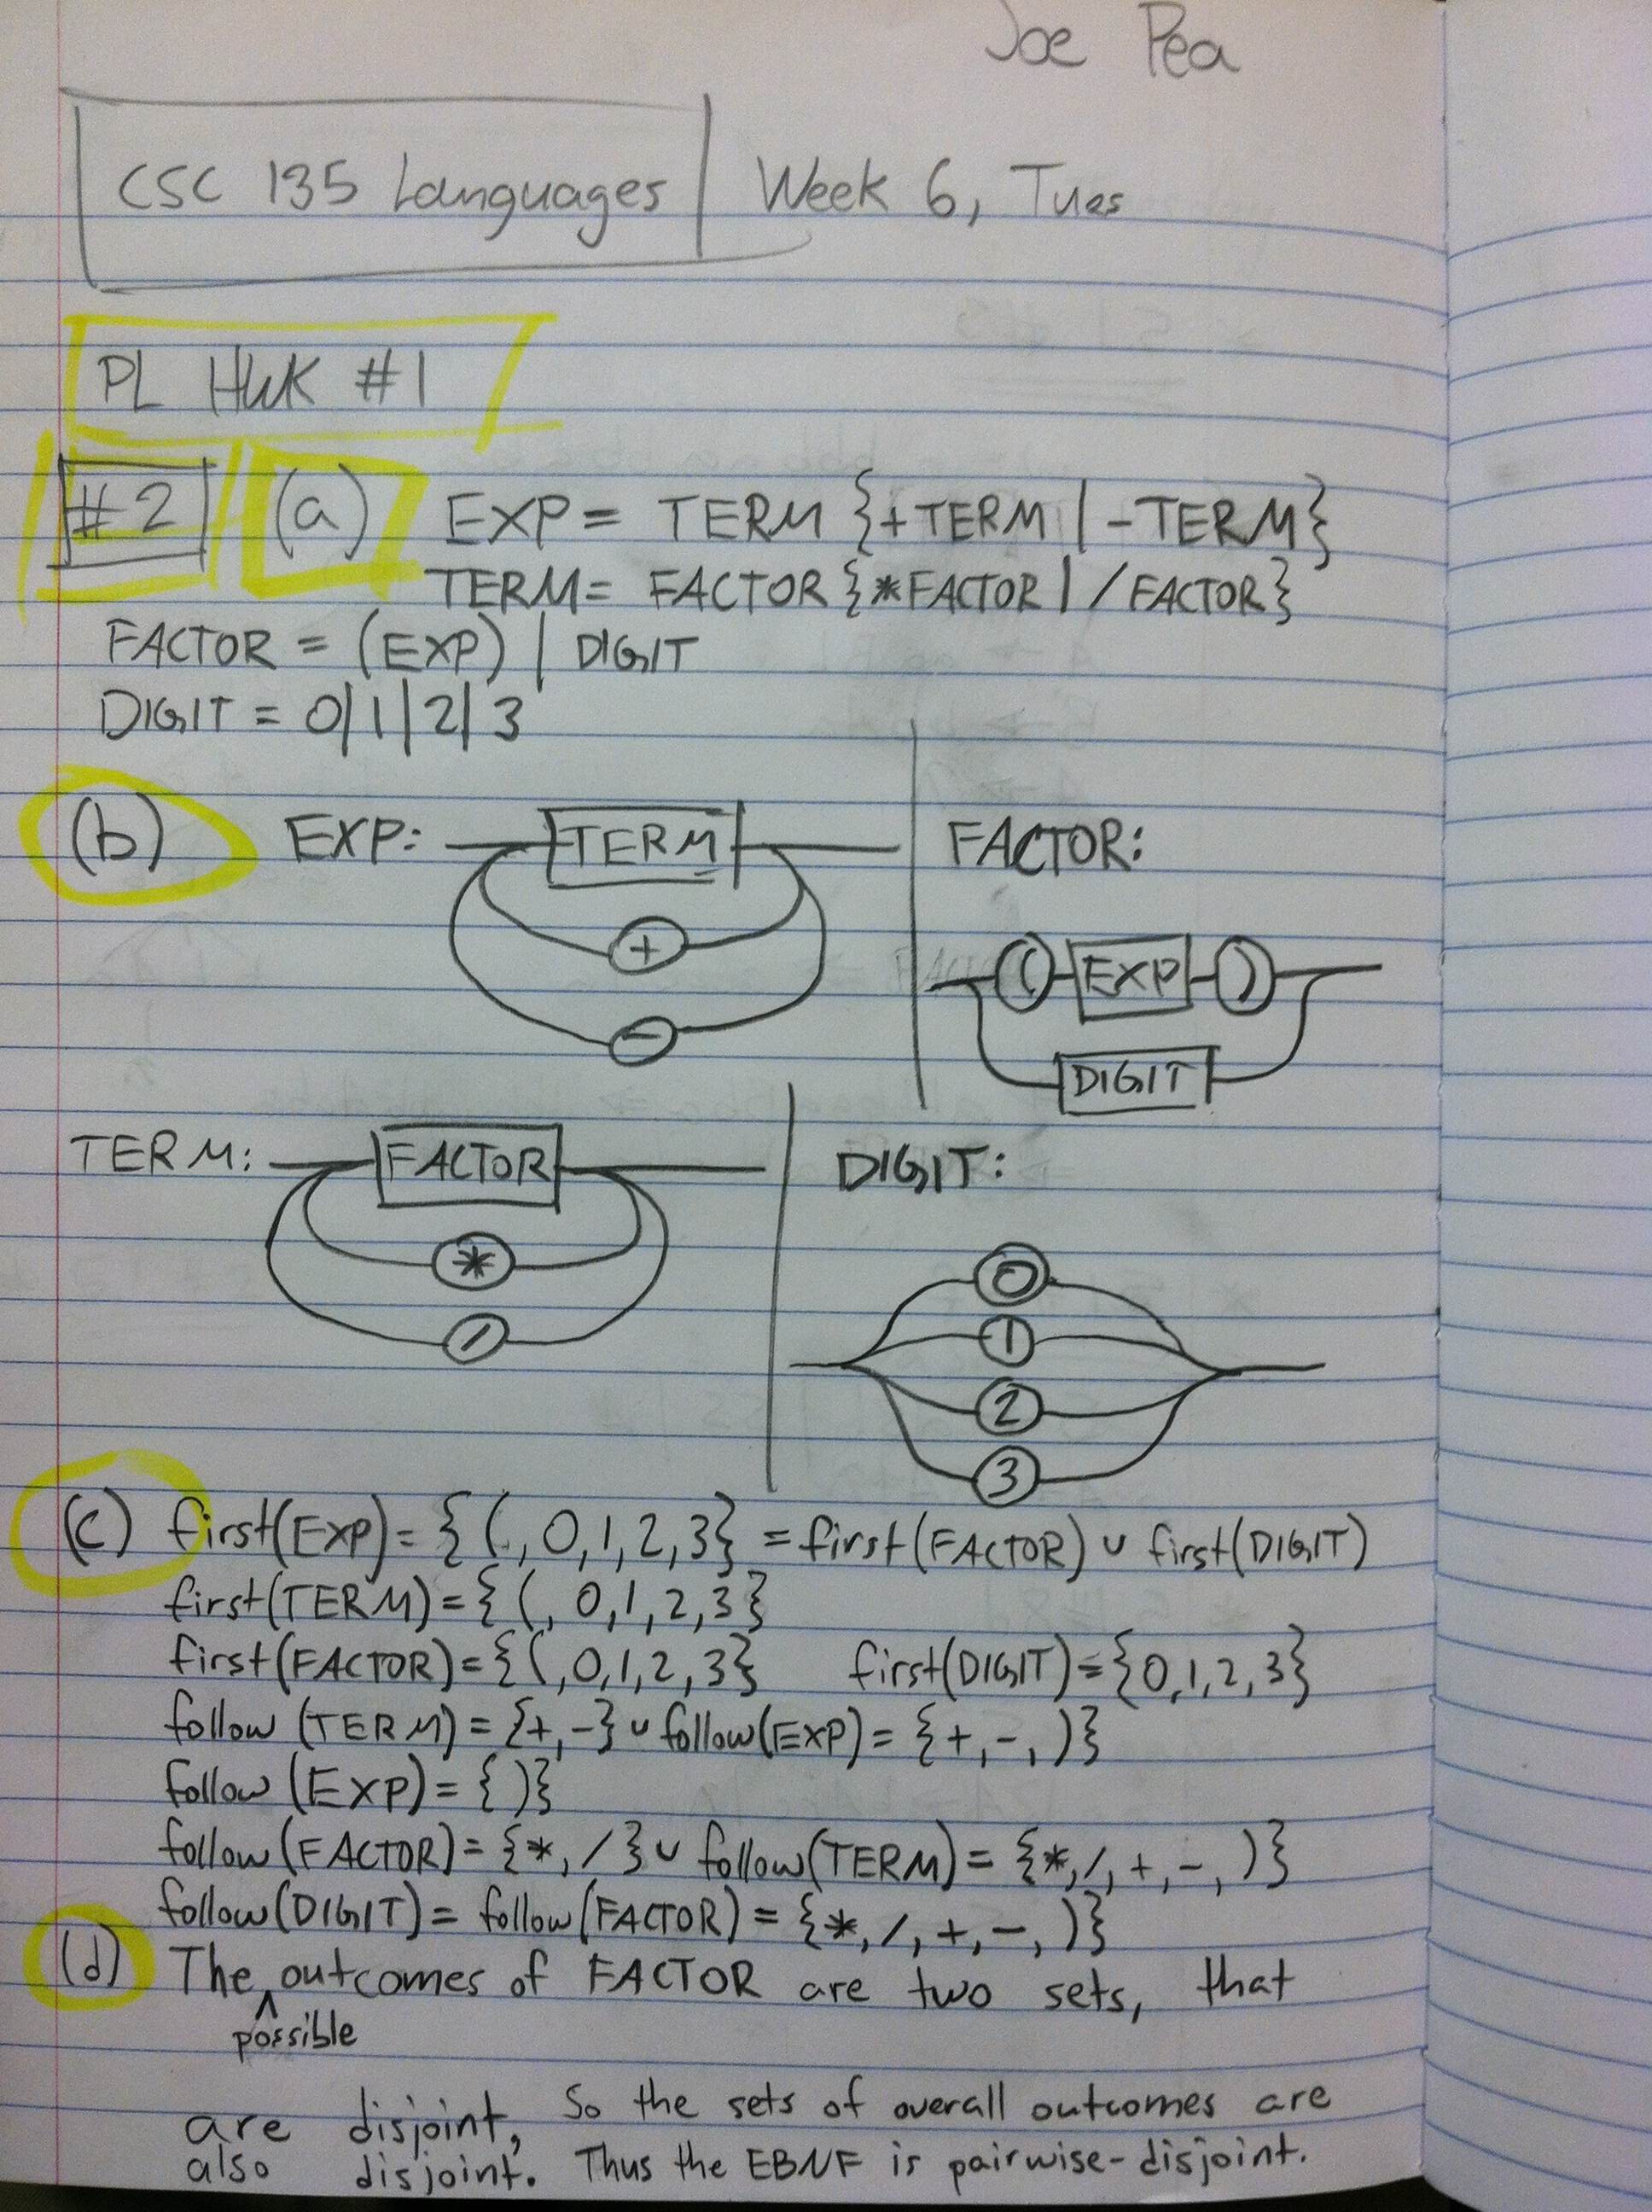 Joe Pea
CSC 135 Languages | Week 6, Tues
PL HWK #1
#2 (a) EXP = TERM {+TERM | -TERM}
TERM = FACTOR {*FACTOR | /FACTOR}
FACTOR = (EXP) | DIGIT
DIGIT = 0|1|2|3
(b) EXP: TERM
+
-
FACTOR:
( EXP )
DIGIT
TERM: FACTOR
*
/
DIGIT:
0
1
2
3
(c) first(EXP) = {(, 0,1,2,3} = first(FACTOR) ∪ first(DIGIT)
first(TERM) = {(, 0,1,2,3}
first(FACTOR) = {(,0,1,2,3} first(DIGIT) = {0,1,2,3}
follow (TERM) = {+,-} ∪ follow(EXP) = {+,-,)}
follow (EXP) = {)}
follow(FACTOR) = {*,/} ∪ follow(TERM) = {*,/,+,-,)}
follow(DIGIT) = follow(FACTOR) = {*,/,+,-,)}
(d) The possible outcomes of FACTOR are two sets, that
are disjoint, So the sets of overall outcomes are
also disjoint. Thus the EBNF is pairwise-disjoint.